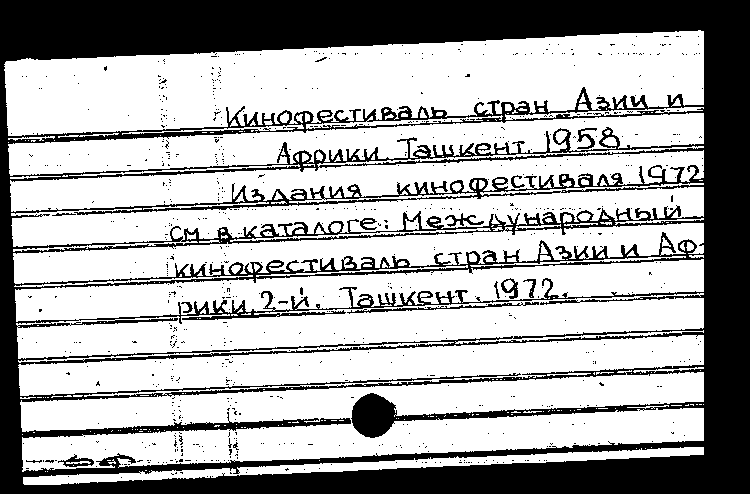 Кинофестиваль стран Азии и
Африки. Ташкент. 1958.
Издания кинофестиваля 1972
см в каталоге: Международный
кинофестиваль стран Азии и Аф-
рики, 2-й. Ташкент. 1972.